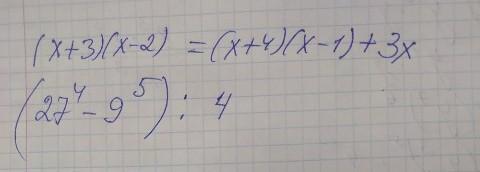 (x+3)(x-2) = (x+4)(x-1)+3x
(27⁴-9⁵) : 4